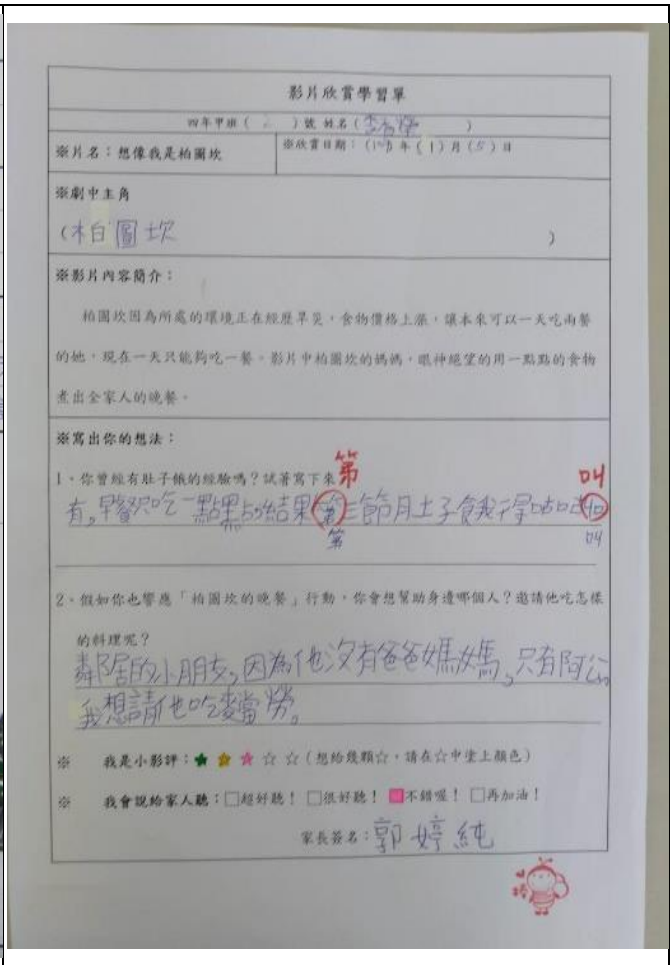 影片欣賞學習單
四年甲班( )號 姓名( )
※片名：想像我是柏圖坎
※欣賞日期：( )年(1)月(5)日
※劇中主角
(柏圖坎 )
※影片內容簡介：
柏圖坎因為所處的環境正在經歷旱災，食物價格上漲，讓本來可以一天吃兩餐
的她，現在一天只能夠吃一餐。影片中柏圖坎的媽媽，眼神絕望的用一點點的食物
煮出全家人的晚餐。
※寫出你的想法：
1、你曾經有肚子餓的經驗嗎？試著寫下來
第
叫
有，早餐只吃一點點的結果第三節肚子餓我得咕咕
第
叫
2、假如你也響應「柏圖坎的晚餐」行動，你會想幫助身邊哪個人？邀請他吃怎樣
的料理呢？
鄰居的小朋友，因為他沒有爸爸媽媽，只有阿公，
我想請他吃麥當勞。
※ 我是小影評：★★★☆☆(想給幾顆☆，請在☆中塗上顏色)
※ 我會說給家人聽：□超好聽！□很好聽！■不錯喔！□再加油！
家長簽名：郭婷純